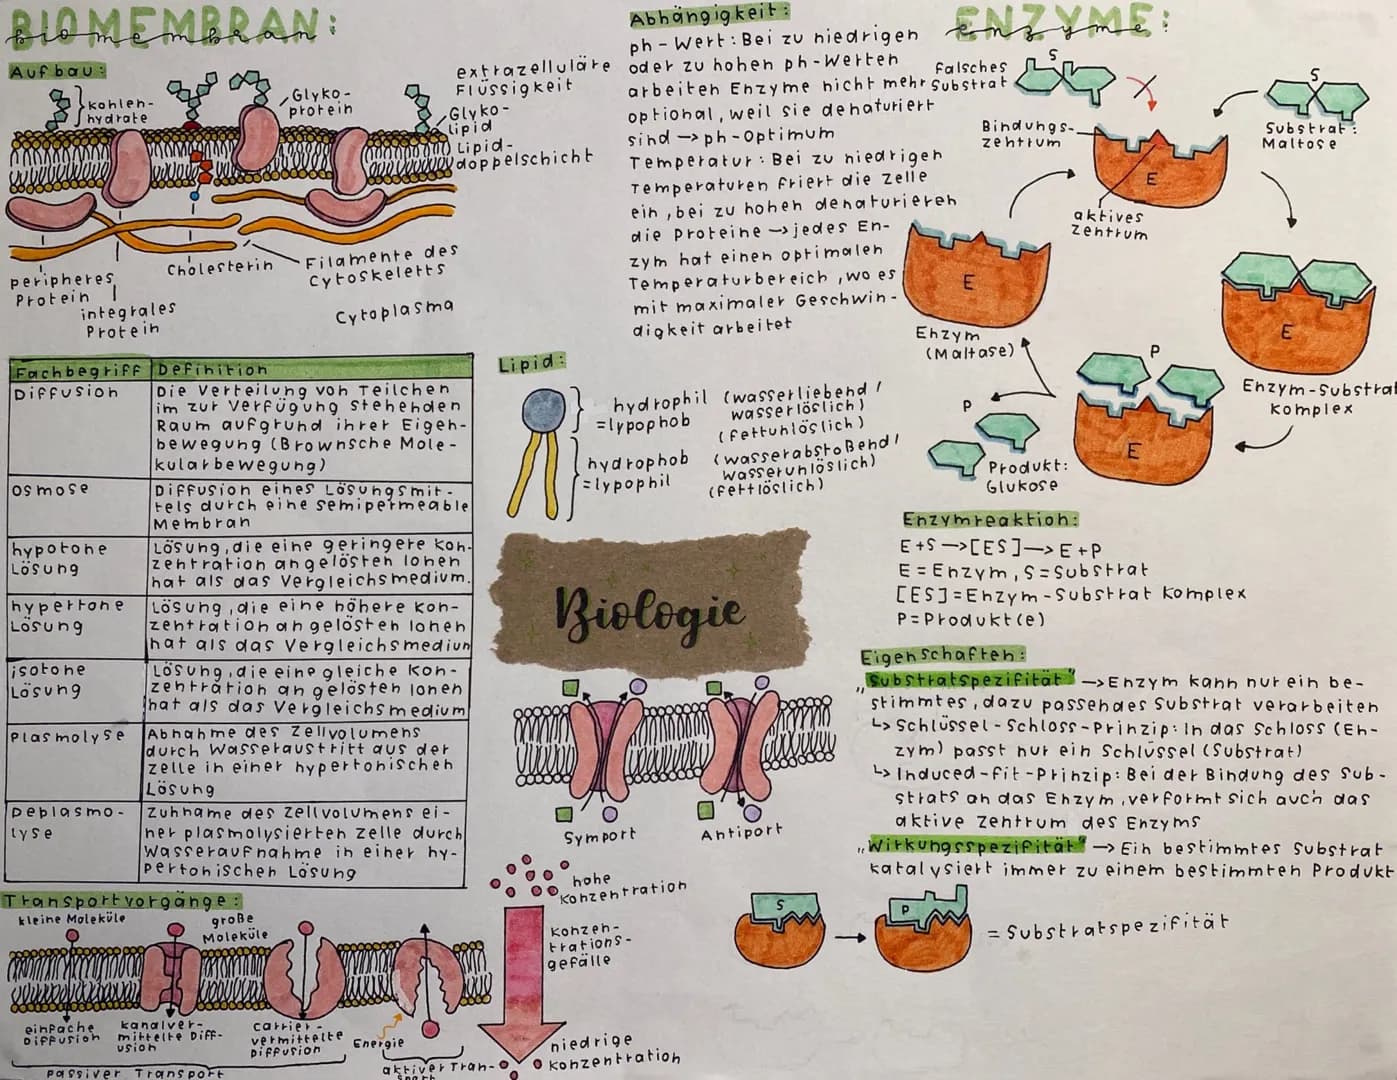 BIOMEMBRAN:
biomembran
Aufbau:
kohlen-
hydrate
Glyko-
protein
extrazelluläre
Flüssigkeit
Glyko-
lipid
Lipid-
doppelschicht
peripheres
Protein
integrales
Protein
Cholesterin
Filamente des
Cytoskeletts
Cytoplasma
Fachbegriff Definition
Diffusion
Die Verteilung von Teilchen
im zur Verfügung stehenden
Raum aufgrund ihrer Eigen-
bewegung (Brownsche Mole-
kularbewegung)
Osmose
Diffusion eines Lösungsmit-
tels durch eine semipermeable
Membran
hypotone
Lösung
Lösung, die eine geringere Kon-
zentration an gelösten Ionen
hat als das Vergleichsmedium.
hypertone
Lösung
Lösung, die eine höhere Kon-
zentration an gelösten Ionen
hat als das Vergleichsmedium
isotone
Lösung
Lösung, die eine gleiche Kon-
zentration an gelösten Ionen
hat als das Vergleichsmedium
Plasmolyse
Abnahme des Zellvolumens
durch Wasseraustritt aus der
Zelle in einer hypertonischen
Lösung
Deplasmo-
lyse
Zuhname des Zellvolumens ei-
ner plasmolysierten Zelle durch
Wasseraufnahme in einer hy-
pertonischen Lösung
Transportvorgänge:
kleine Moleküle
große
Moleküle
einfache
Diffusion
kanalver-
mittelte Diff-
usion
carrier-
vermittelte
Diffusion
Energie
passiver Transport
aktiver Tran-
sport
hohe
Konzentration
Konzen-
trations-
gefälle
niedrige
Konzentration
Abhängigkeit:
ph-Wert: Bei zu niedrigen
oder zu hohen ph-Werten
arbeiten Enzyme nicht mehr
optional, weil sie denaturiert
sind → ph-Optimum
Temperatur: Bei zu niedrigen
Temperaturen friert die Zelle
ein, bei zu hohen denaturieren
die Proteine → jedes En-
zym hat einen optimalen
Temperaturbereich, wo es
mit maximaler Geschwin-
digkeit arbeitet
Lipid:
hydrophil (wasserliebend/
wasserlöslich)
=lypophob (fettunlöslich)
hydrophob (wasserabstoßend/
wasserunlöslich)
=lypophil (fettlöslich)
Biologie
Symport
Antiport
ENZYME:
enzyme
Falsches
Substrat
S
S
Substrat:
Maltose
Bindungs-
zentrum
E
aktives
Zentrum
E
Enzym
(Maltase)
E
Enzym-Substrat
Komplex
P
E
P
Produkt:
Glukose
Enzymreaktion:
E+S → [ES] → E+P
E=Enzym, S=Substrat
[ES]=Enzym-Substrat Komplex
P=Produkt(e)
Eigenschaften:
„Substratspezifität" → Enzym kann nur ein be-
stimmtes, dazu passendes Substrat verarbeiten
↳ Schlüssel-Schloss-Prinzip: In das Schloss (En-
zym) passt nur ein Schlüssel (Substrat)
↳ Induced-fit-Prinzip: Bei der Bindung des Sub-
strats an das Enzym, verformt sich auch das
aktive Zentrum des Enzyms
„Wirkungsspezifität" → Ein bestimmtes Substrat
katalysiert immer zu einem bestimmten Produkt
S
P
= Substratspezifität